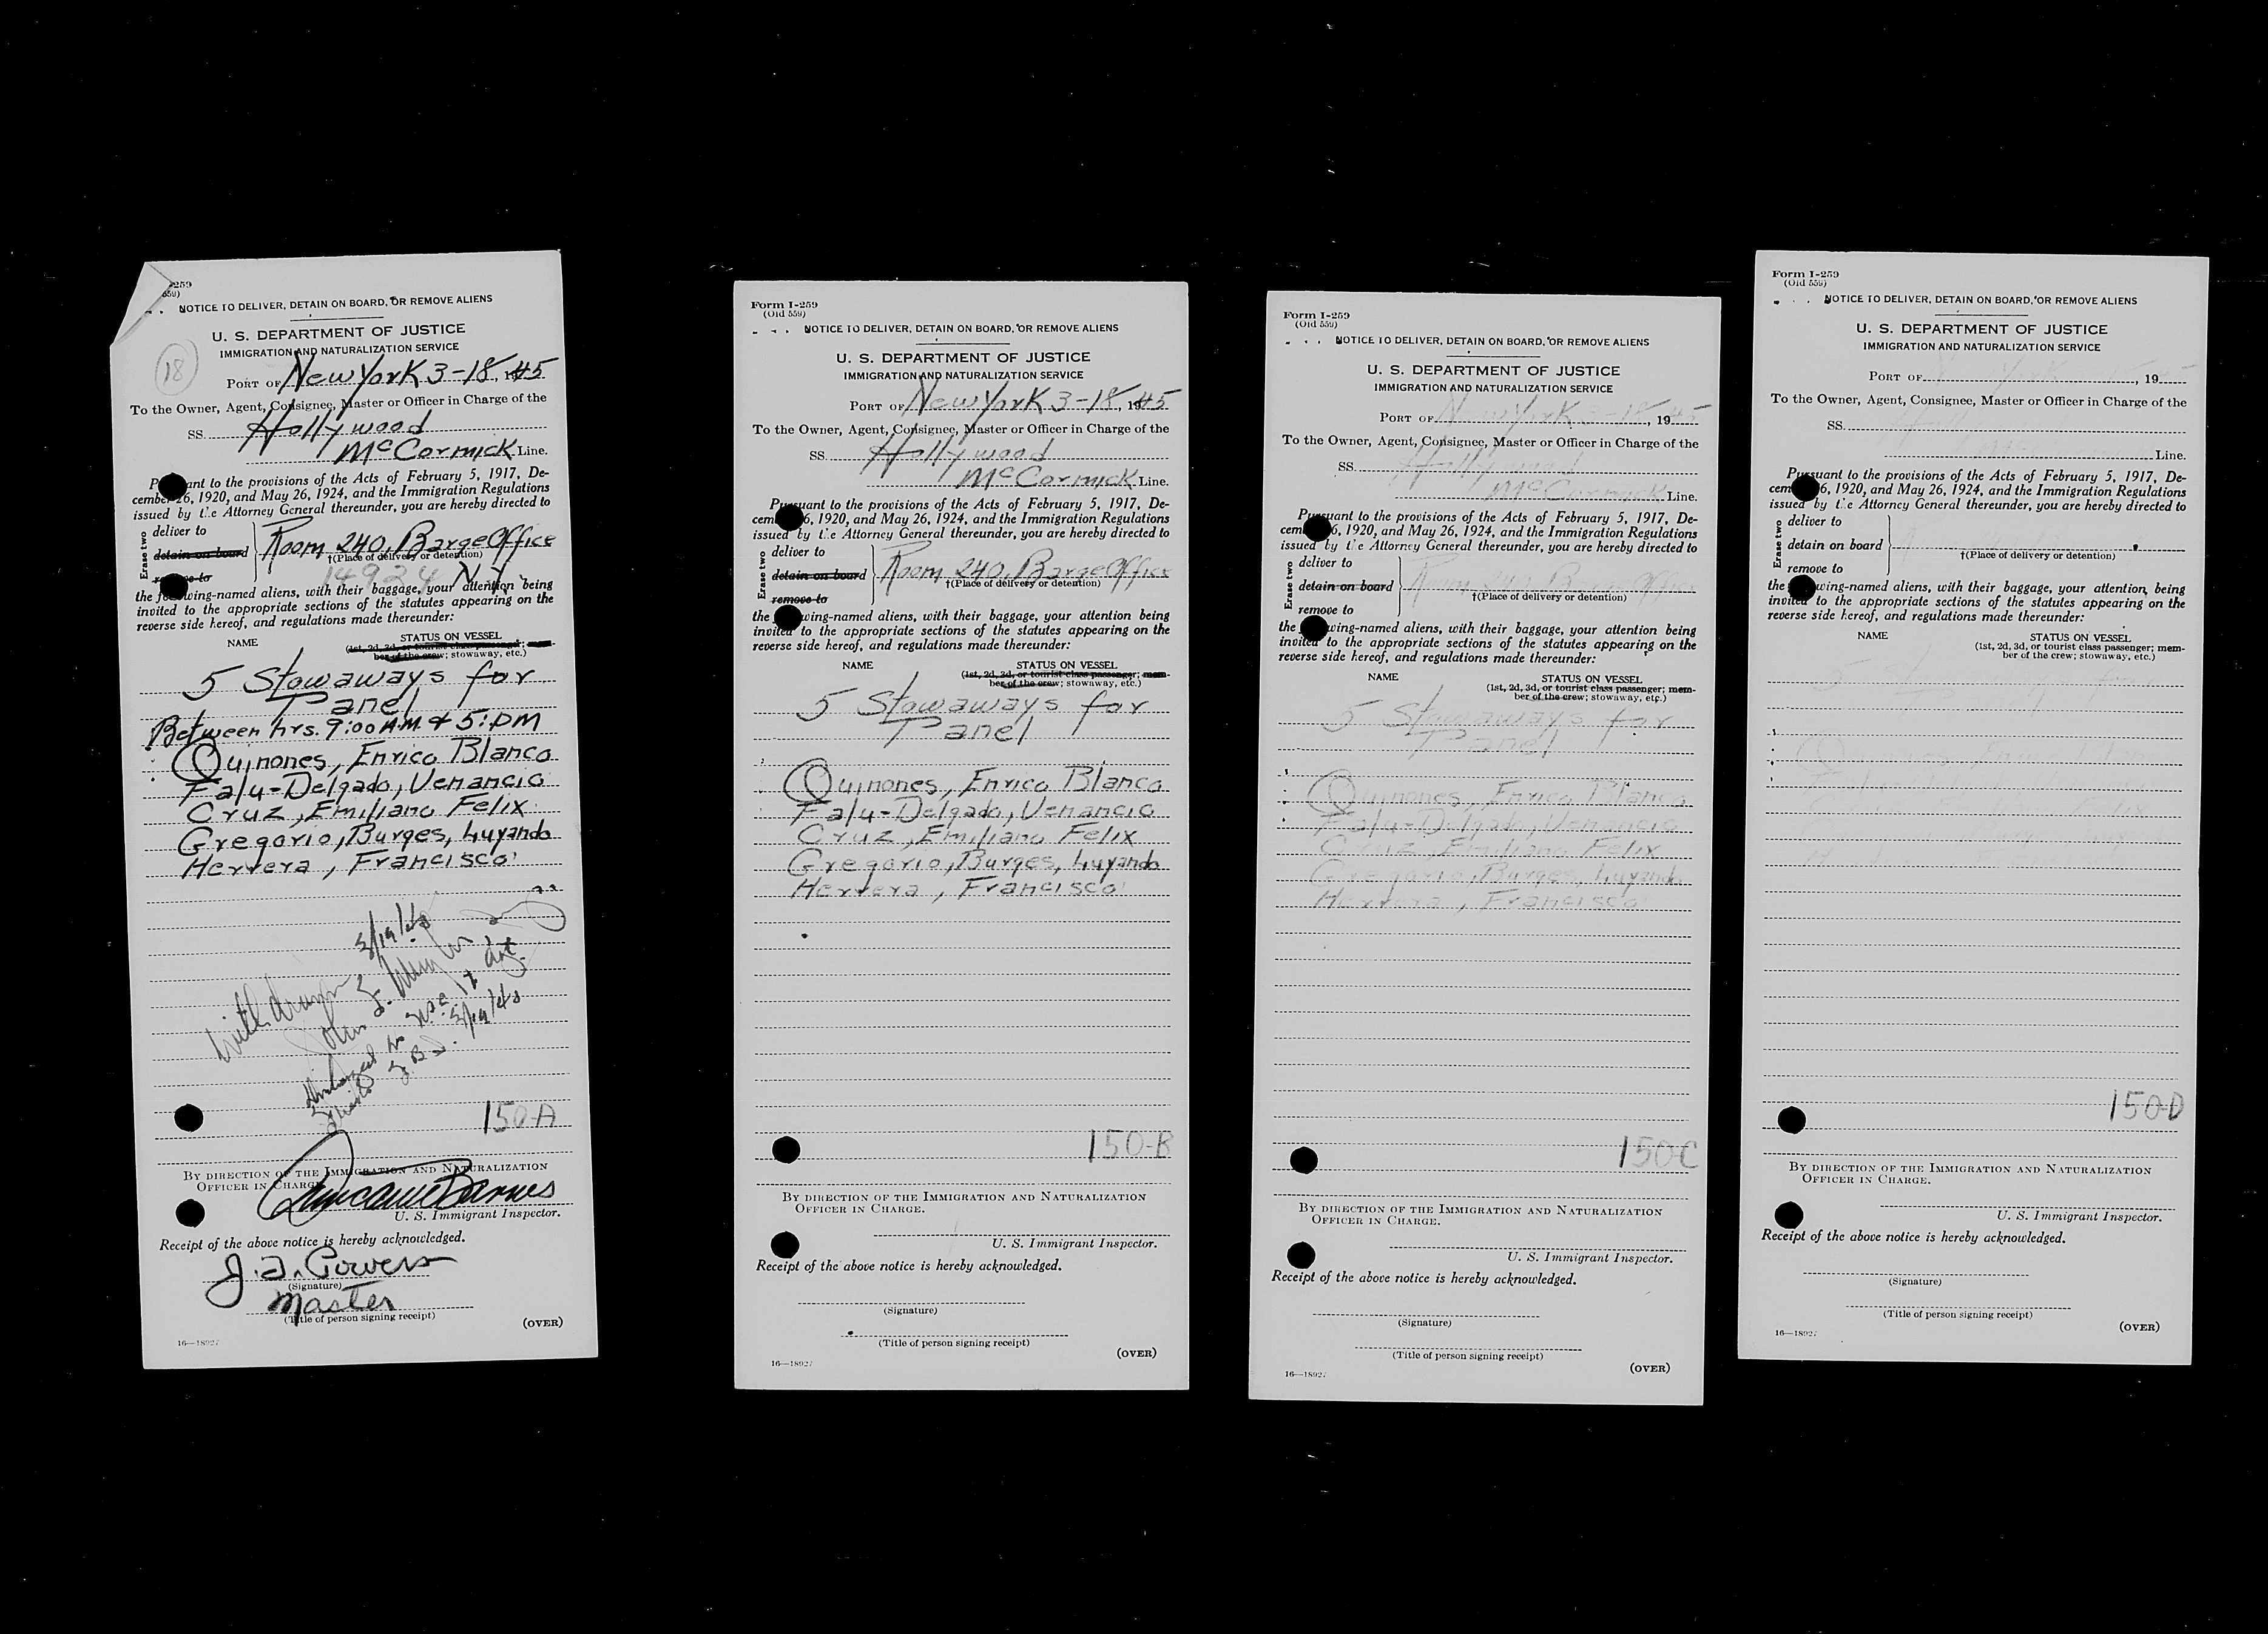 259
559)
NOTICE TO DELIVER, DETAIN ON BOARD, OR REMOVE ALIENS
U. S. DEPARTMENT OF JUSTICE
IMMIGRATION AND NATURALIZATION SERVICE
18
PORT OF New York 3-18, 1945
To the Owner, Agent, Consignee, Master or Officer in Charge of the
SS. Hollywood
McCormick Line.
Pursuant to the provisions of the Acts of February 5, 1917, De-
cember 26, 1920, and May 26, 1924, and the Immigration Regulations
issued by the Attorney General thereunder, you are hereby directed to
Erase two
deliver to
detain on board
remove to
Room 240, Barge Office
†(Place of delivery or detention)
14924 N.Y.
the following-named aliens, with their baggage, your attention being
invited to the appropriate sections of the statutes appearing on the
reverse side hereof, and regulations made thereunder:
NAME STATUS ON VESSEL
(1st, 2d, 3d, or tourist class passenger; mem-
ber of the crew; stowaway, etc.)
5 Stowaways for
Panel
Between hrs. 9:00 A.M & 5:PM
Quinones, Enrico Blanco
Falu-Delgado, Venancio
Cruz, Emiliano Felix
Gregorio, Burges, Luyando
Herrera, Francisco
3/19/45
Withdrawn
John
3/19/45
150-A
BY DIRECTION OF THE IMMIGRATION AND NATURALIZATION
OFFICER IN CHARGE.
U. S. Immigrant Inspector.
Receipt of the above notice is hereby acknowledged.
J. A. Powers
(Signature)
Master
(Title of person signing receipt)
(OVER)
16—18927
Form I-259
(Old 559)
NOTICE TO DELIVER, DETAIN ON BOARD, OR REMOVE ALIENS
U. S. DEPARTMENT OF JUSTICE
IMMIGRATION AND NATURALIZATION SERVICE
PORT OF New York 3-18, 1945
To the Owner, Agent, Consignee, Master or Officer in Charge of the
SS. Hollywood
McCormick Line.
Pursuant to the provisions of the Acts of February 5, 1917, De-
cember 26, 1920, and May 26, 1924, and the Immigration Regulations
issued by the Attorney General thereunder, you are hereby directed to
Erase two
deliver to
detain on board
remove to
Room 240, Barge Office
†(Place of delivery or detention)
the following-named aliens, with their baggage, your attention being
invited to the appropriate sections of the statutes appearing on the
reverse side hereof, and regulations made thereunder:
NAME STATUS ON VESSEL
(1st, 2d, 3d, or tourist class passenger; mem-
ber of the crew; stowaway, etc.)
5 Stowaways for
Panel
Quinones, Enrico Blanco
Falu-Delgado, Venancio
Cruz, Emiliano Felix
Gregorio, Burges, Luyando
Herrera, Francisco
150-B
BY DIRECTION OF THE IMMIGRATION AND NATURALIZATION
OFFICER IN CHARGE.
U. S. Immigrant Inspector.
Receipt of the above notice is hereby acknowledged.
(Signature)
(Title of person signing receipt)
(OVER)
16—18927
Form I-259
(Old 559)
NOTICE TO DELIVER, DETAIN ON BOARD, OR REMOVE ALIENS
U. S. DEPARTMENT OF JUSTICE
IMMIGRATION AND NATURALIZATION SERVICE
PORT OF New York 3-18, 1945
To the Owner, Agent, Consignee, Master or Officer in Charge of the
SS. Hollywood
McCormick Line.
Pursuant to the provisions of the Acts of February 5, 1917, De-
cember 26, 1920, and May 26, 1924, and the Immigration Regulations
issued by the Attorney General thereunder, you are hereby directed to
Erase two
deliver to
detain on board
remove to
Room 240, Barge Off
†(Place of delivery or detention)
the following-named aliens, with their baggage, your attention being
invited to the appropriate sections of the statutes appearing on the
reverse side hereof, and regulations made thereunder:
NAME STATUS ON VESSEL
(1st, 2d, 3d, or tourist class passenger; mem-
ber of the crew; stowaway, etc.)
5 Stowaways for
Panel
Quinones, Enrico Blanco
Falu-Delgado, Venancio
Cruz, Emiliano Felix
Gregorio, Burges, Luyando
Herrera, Francisco
150-C
BY DIRECTION OF THE IMMIGRATION AND NATURALIZATION
OFFICER IN CHARGE.
U. S. Immigrant Inspector.
Receipt of the above notice is hereby acknowledged.
(Signature)
(Title of person signing receipt)
(OVER)
16—18927
Form I-259
(Old 559)
NOTICE TO DELIVER, DETAIN ON BOARD, OR REMOVE ALIENS
U. S. DEPARTMENT OF JUSTICE
IMMIGRATION AND NATURALIZATION SERVICE
PORT OF , 19
To the Owner, Agent, Consignee, Master or Officer in Charge of the
SS.
Line.
Pursuant to the provisions of the Acts of February 5, 1917, De-
cember 26, 1920, and May 26, 1924, and the Immigration Regulations
issued by the Attorney General thereunder, you are hereby directed to
Erase two
deliver to
detain on board
remove to
†(Place of delivery or detention)
the following-named aliens, with their baggage, your attention being
invited to the appropriate sections of the statutes appearing on the
reverse side hereof, and regulations made thereunder:
NAME STATUS ON VESSEL
(1st, 2d, 3d, or tourist class passenger; mem-
ber of the crew; stowaway, etc.)
150-D
BY DIRECTION OF THE IMMIGRATION AND NATURALIZATION
OFFICER IN CHARGE.
U. S. Immigrant Inspector.
Receipt of the above notice is hereby acknowledged.
(Signature)
(Title of person signing receipt)
(OVER)
16—18927